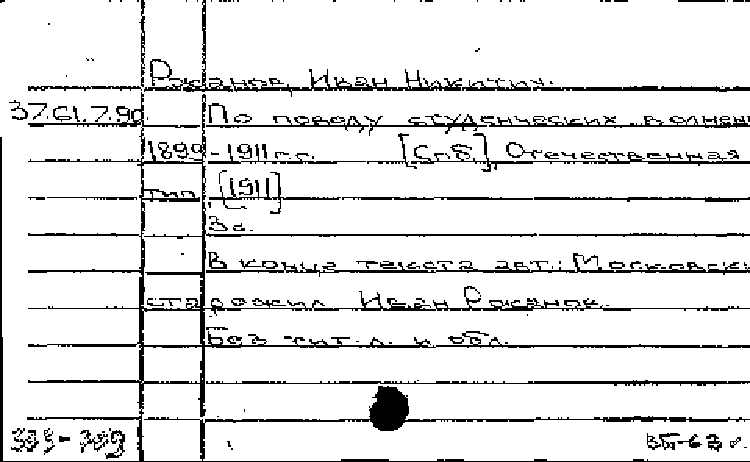 Иван Никитич.
37.61.7.90 По поводу студенческих волнен
1899-1911 г.г. [Спб.], Отечественная
тип. [1911]
3 с.
В конце текста авт.: Московск
старожил Иван
Без тит. л. и обл.